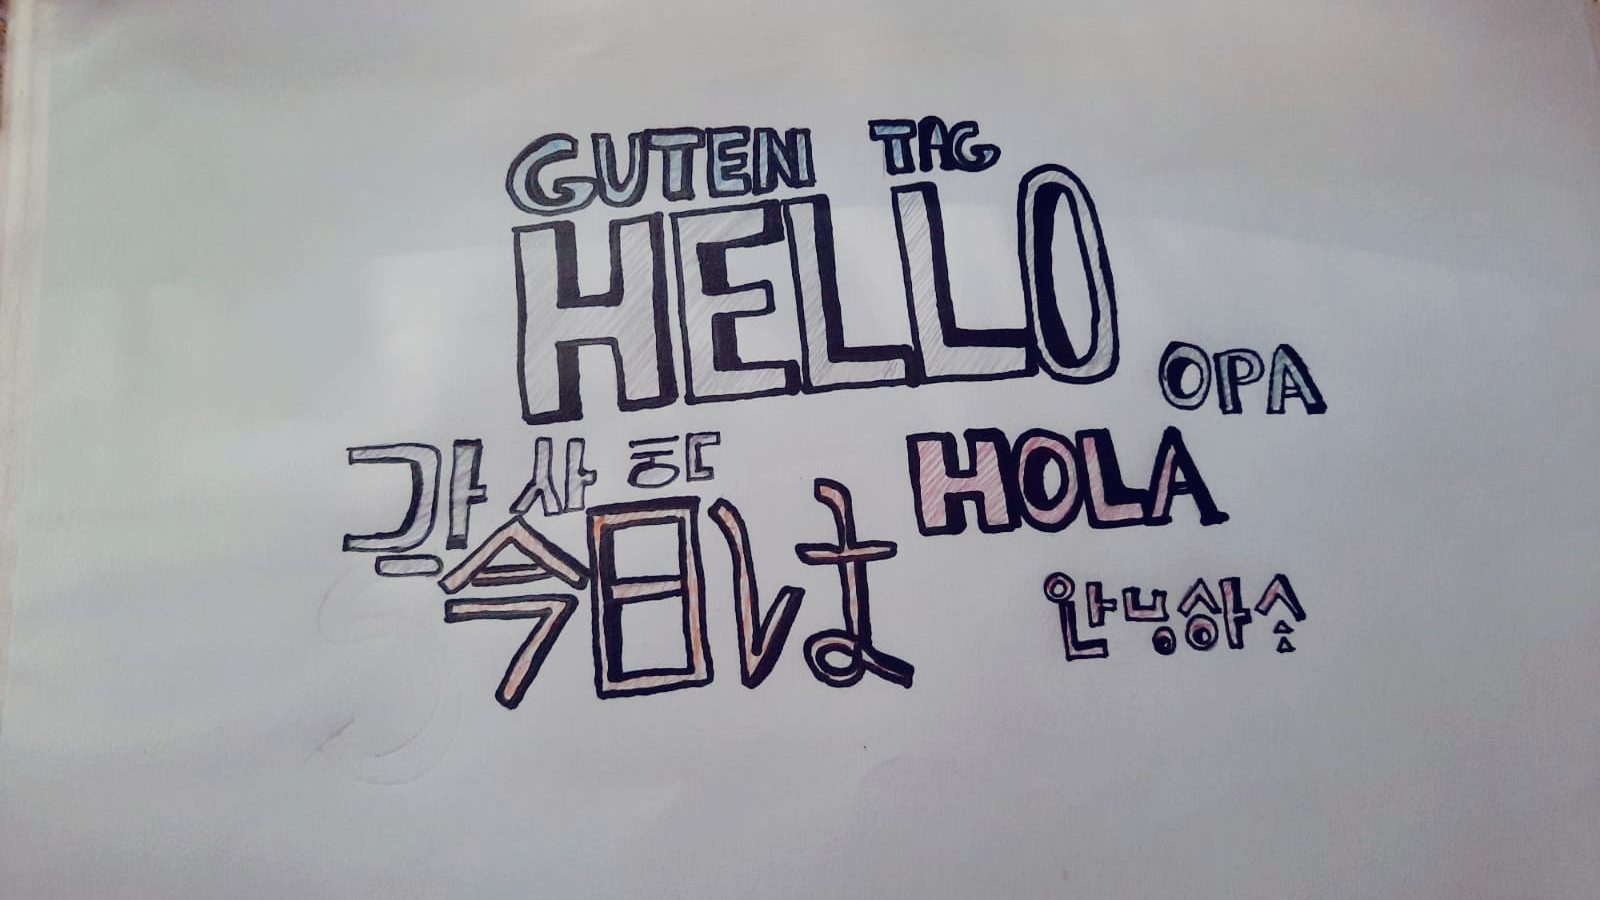 GUTEN TAG
HELLO
OPA
감사하
HOLA
今日は